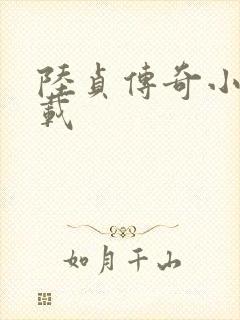 陸貞傳奇小
載
如月千山